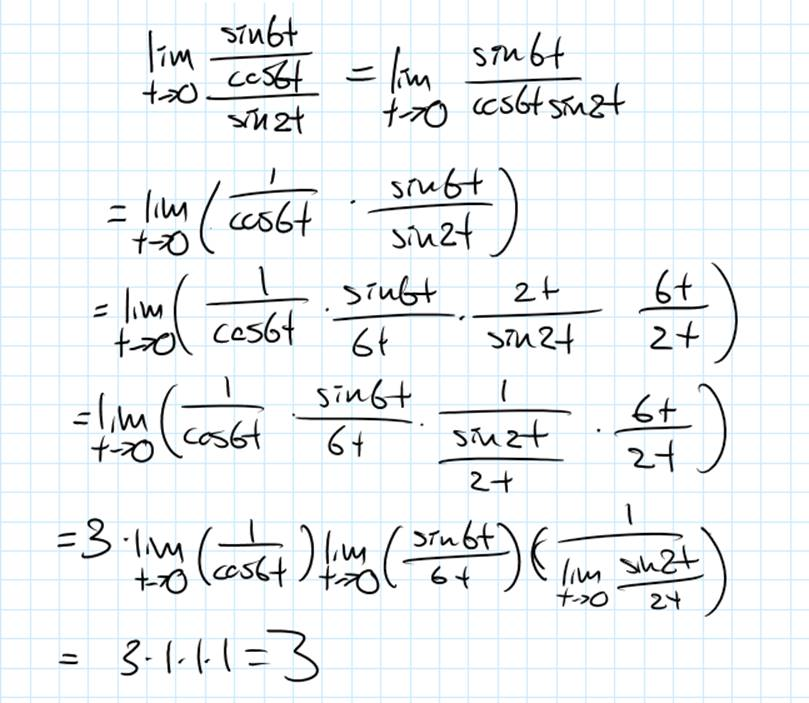 lim_{t→0} ((sin6t/cos6t)/sin2t) = lim_{t→0} (sin6t)/(cos6t sin2t)
= lim_{t→0} (1/cos6t · sin6t/sin2t)
= lim_{t→0} (1/cos6t · sin6t/6t · 2t/sin2t 6t/2t)
= lim_{t→0} (1/cos6t · sin6t/6t · 1/(sin2t/2t) · 6t/2t)
= 3 · lim_{t→0} (1/cos6t) lim_{t→0} (sin6t/6t) (1/(lim_{t→0} sin2t/2t))
= 3·1·1·1 = 3